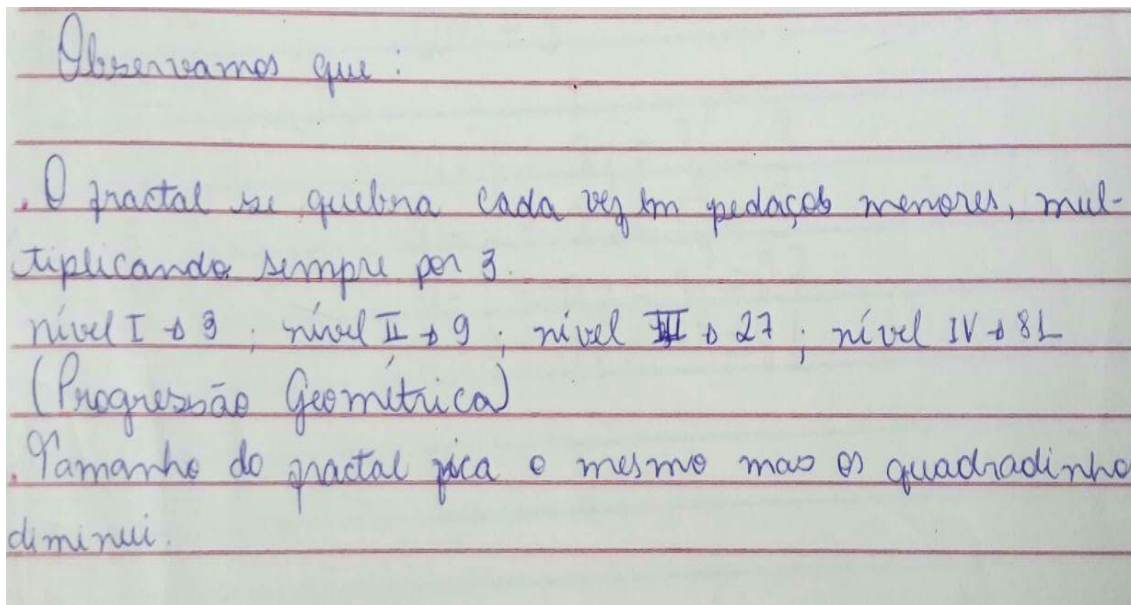 Observamos que :
. O fractal se quebra cada vez em pedaços menores, mul-
tiplicando sempre por 3.
nível I → 3 ; nível II → 9 ; nível III → 27 ; nível IV → 81
(Progressão Geométrica)
. Tamanho do fractal fica o mesmo mas os quadradinho
diminui.